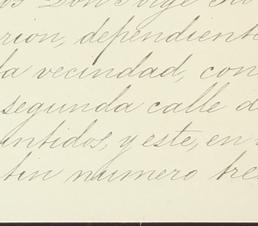 os Don Jorge
rion, dependiente
ta vecindad, con
segunda calle d
intidos, y este, en
tin numero tre